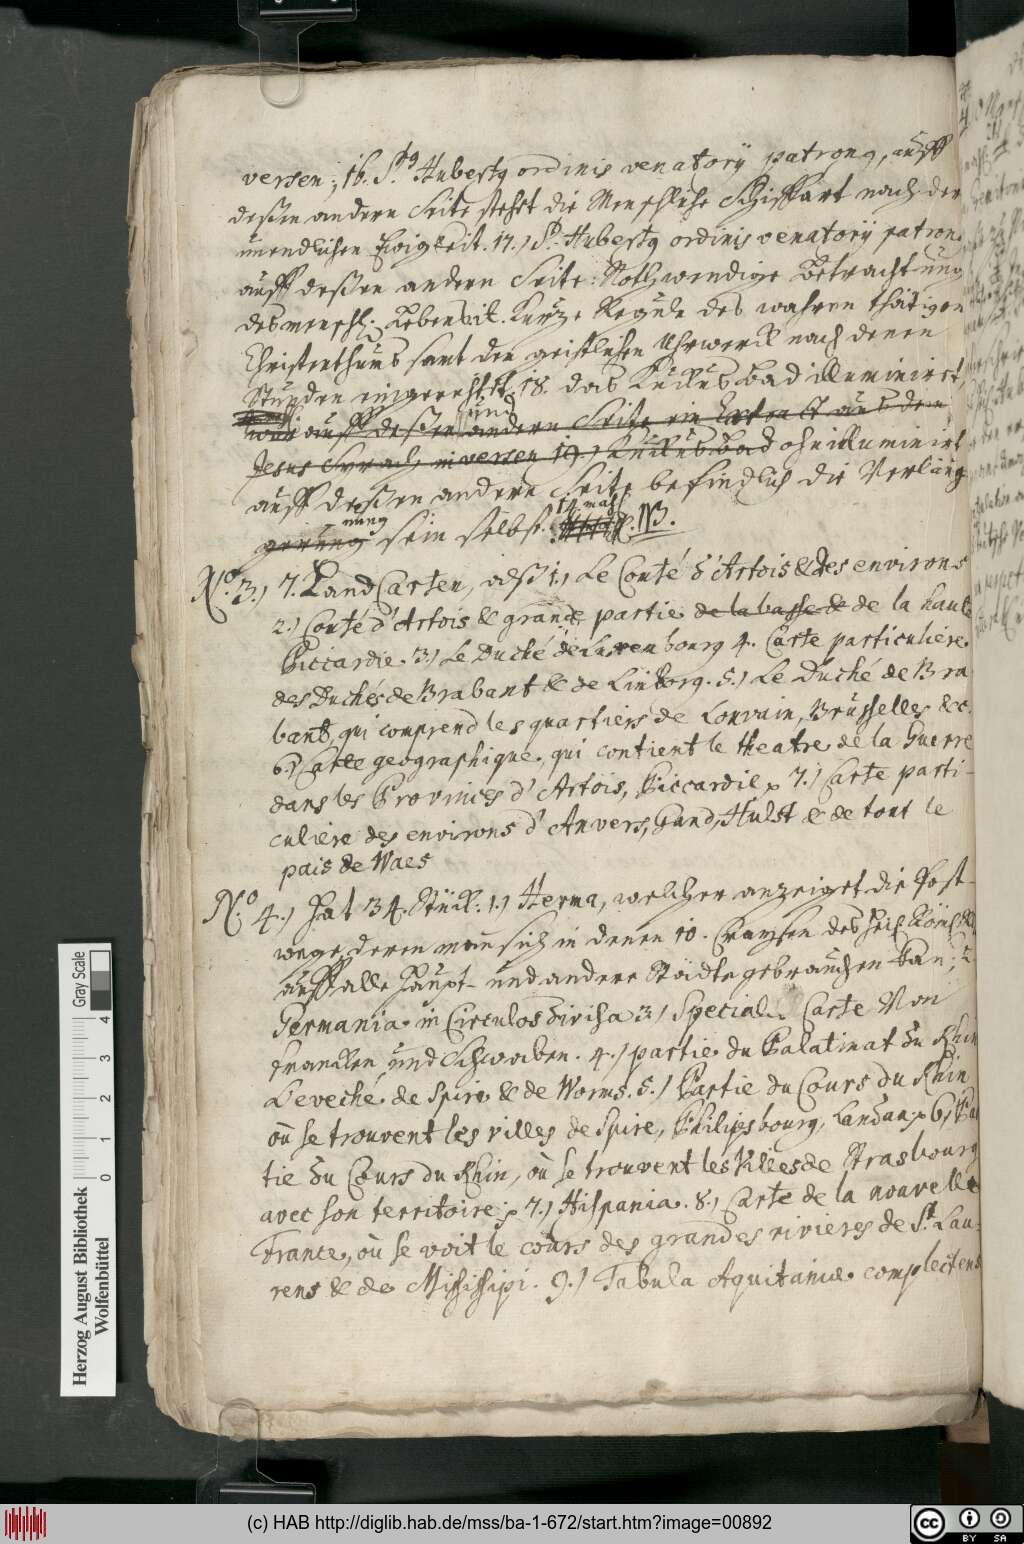 versen; 16. S.tg Hubestg ordinis venatorÿ patrong, auff
deßen andern Seite stehet die Menschliche Schiffart nach der
unendlichen Ewigkeit. 17.) St. Hubestg ordinis venatorÿ patron
auff deßen andern Seite: Nothwendige Betrachtung
des menschl. Lebens it. Kurtze Regule des wahren thätigen
Christenthums samt der geistlichen Uhrwerck nach denen
Stunden eingerichtet. 18. das Kuckusbad illuminiret,
und
auff deßen andern Seite ein Extract aus dem
Jesus Syrach, in versen 19.) Kuckusbad ohnilluminirt
auff deßen andern Seite befindlich die Verläug
nung
14 mahl
sein selbst. NB.
No. 3.) 7. Land Carten, alß 1.) Le Conté d'Artois & des environs
2.) Conté d'Artois & grande partie de la basse & de la haute
Piccardie. 3.) Le Duché de Luxenbourg 4. Carte particuliére
des Duchés de Brabant & de Linborg. 5.) Le Duché de Bra
bant, qui comprend les quartiers de Louvain, Brusselles &c.
6.) Carte geographique, qui contient le theatre de la Guerre
dans les Provinces d'Artois, Piccardie 7.) Carte parti-
culière des environs d'Anvers, Gand, Hulst & de tout le
pais de Waes
No. 4.) Hat 34. Stück. 1.) Herma, welcher anzeiget die Post-
wege, deren man sich in denen 10. Craysen des Heil. Röm.
auff alle Haupt- und andere Städte gebrauchen kan; 2
Germania in Circulos divisa 3.) Special Carte Von
francken und Schwaben. 4.) partie du Palatinat du Rhin
L'eveché de Spire & de Worms. 5.) Partie du Cours du Rhin
où se trouvent les villes de Spire, Philipsbourg, Landau 6.) Par
tie du Cours du Rhin, où se trouvent les Villes de Strasbourg
avec son territoire 7.) Hispania. 8.) Carte de la nouvelle
France, où se voit le cours des grandes rivieres de St. Lau-
rens & de Missisipi. 9.) Tabula Aquitaniæ complectens
Herzog August Bibliothek
Wolfenbüttel
Gray Scale
0 1 2 3 4
(c) HAB http://diglib.hab.de/mss/ba-1-672/start.htm?image=00892
cc BY SA